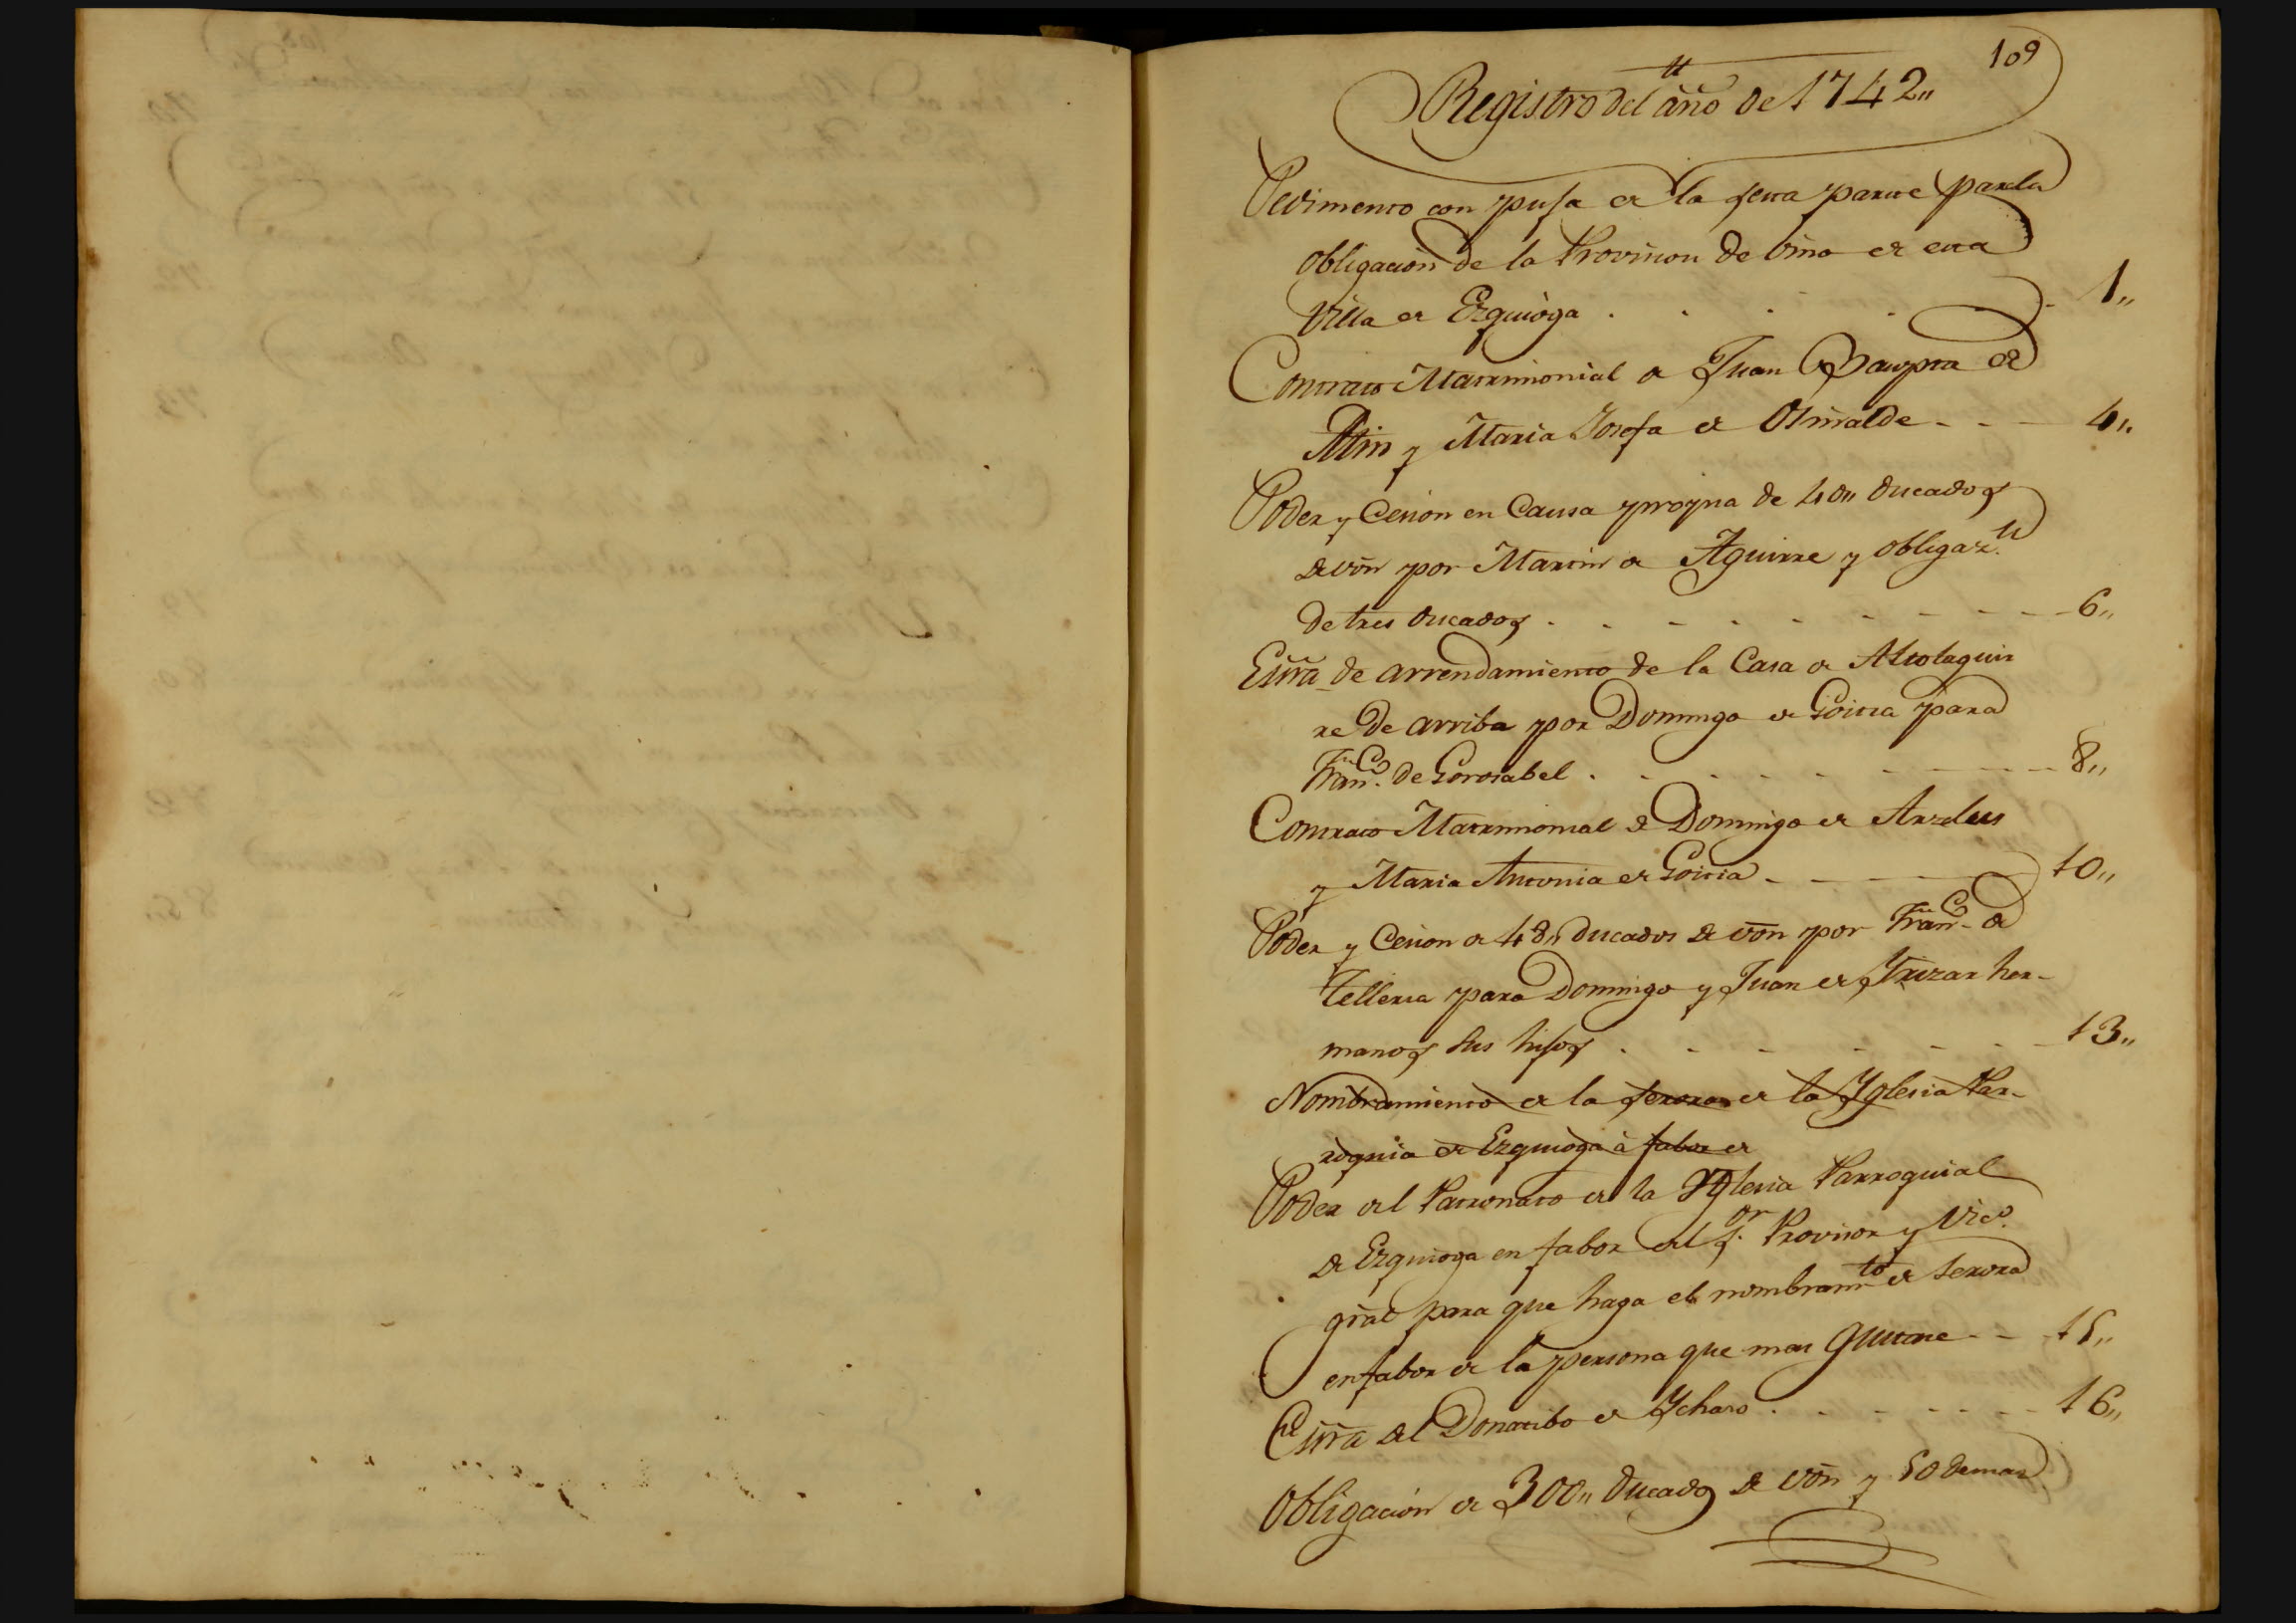 109
Registro del año de 1742,,
Pedimento con puja de la sexta parte para la
obligacion de la Provision de vino de esta
Villa de Ezquioga . . . . . 1,,
Contrato Matrimonial de Juan Bauptta de
y Maria Josefa de Osinalde - - - 4,,
Poder y Cesion en Causa propria de 40,, ducados
de von por Martin de Aguirre y obligazn
de tres ducados . - - - - - - - 6,,
Essra de arrendamiento de la Casa de Altolaguir
re de arriba por Domingo de Goitia para
Franco. de Gorosabel . - - - - - - 8,,
Contrato Matrimonial de Domingo de
y Maria Antonia de Goitia - - - - 10,,
Poder y Cesion de 48,, ducados de von por Franco. de
Telleria para Domingo y Juan de Yrizar her-
manos sus hijos . - - - - - 13,,
Nombramiento de la serora de la Yglesia Par-
roquia de Ezquioga à fabor de
Poder del Patronato de la Yglesia Parroquial
de Ezquioga en fabor del Sor. Provisor y Vico.
gral para que haga el nombramto de serora
en fabor de la persona que mas gustare - - 15,,
Essra del Donatibo de Ychaso . - - - - 16,,
Obligacion de 300,, ducados de von y 50 demas